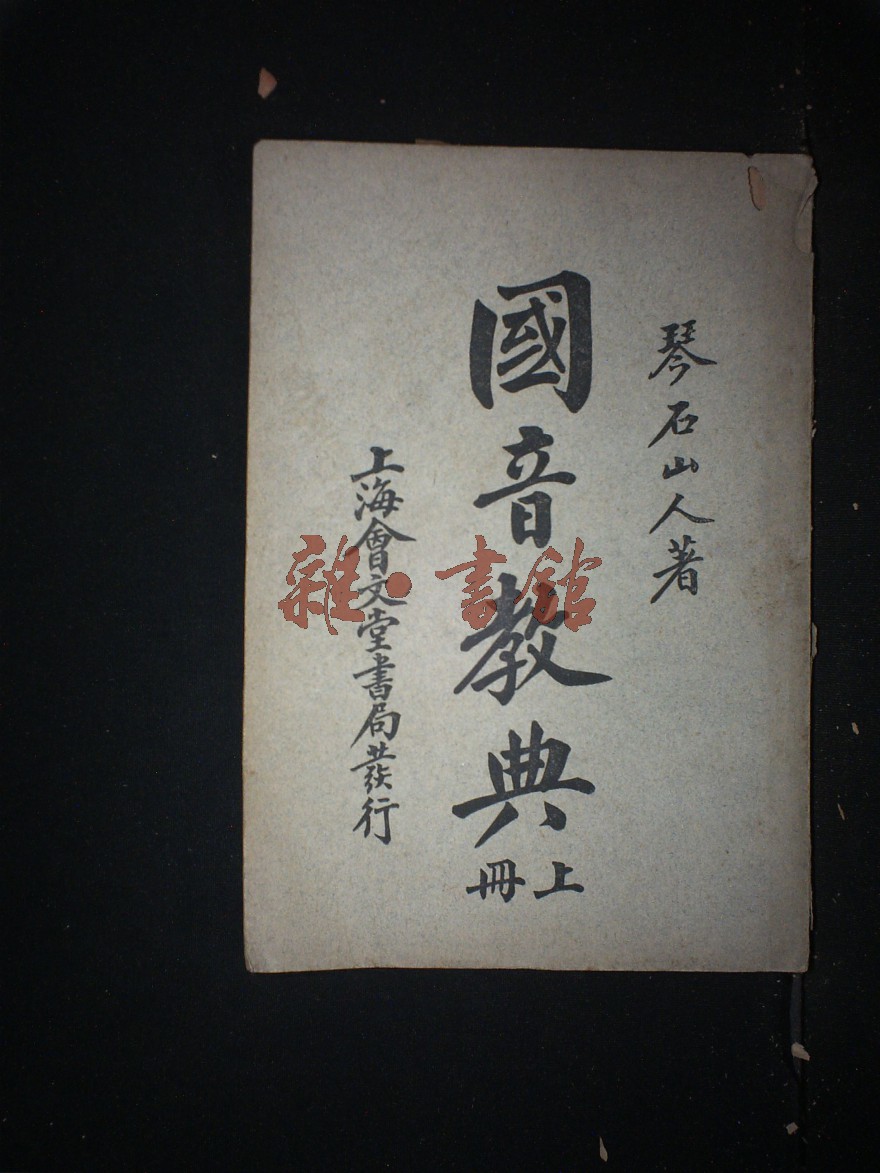 琴石山人著
國音教典
上冊
上海會文堂書局發行
雜·書館